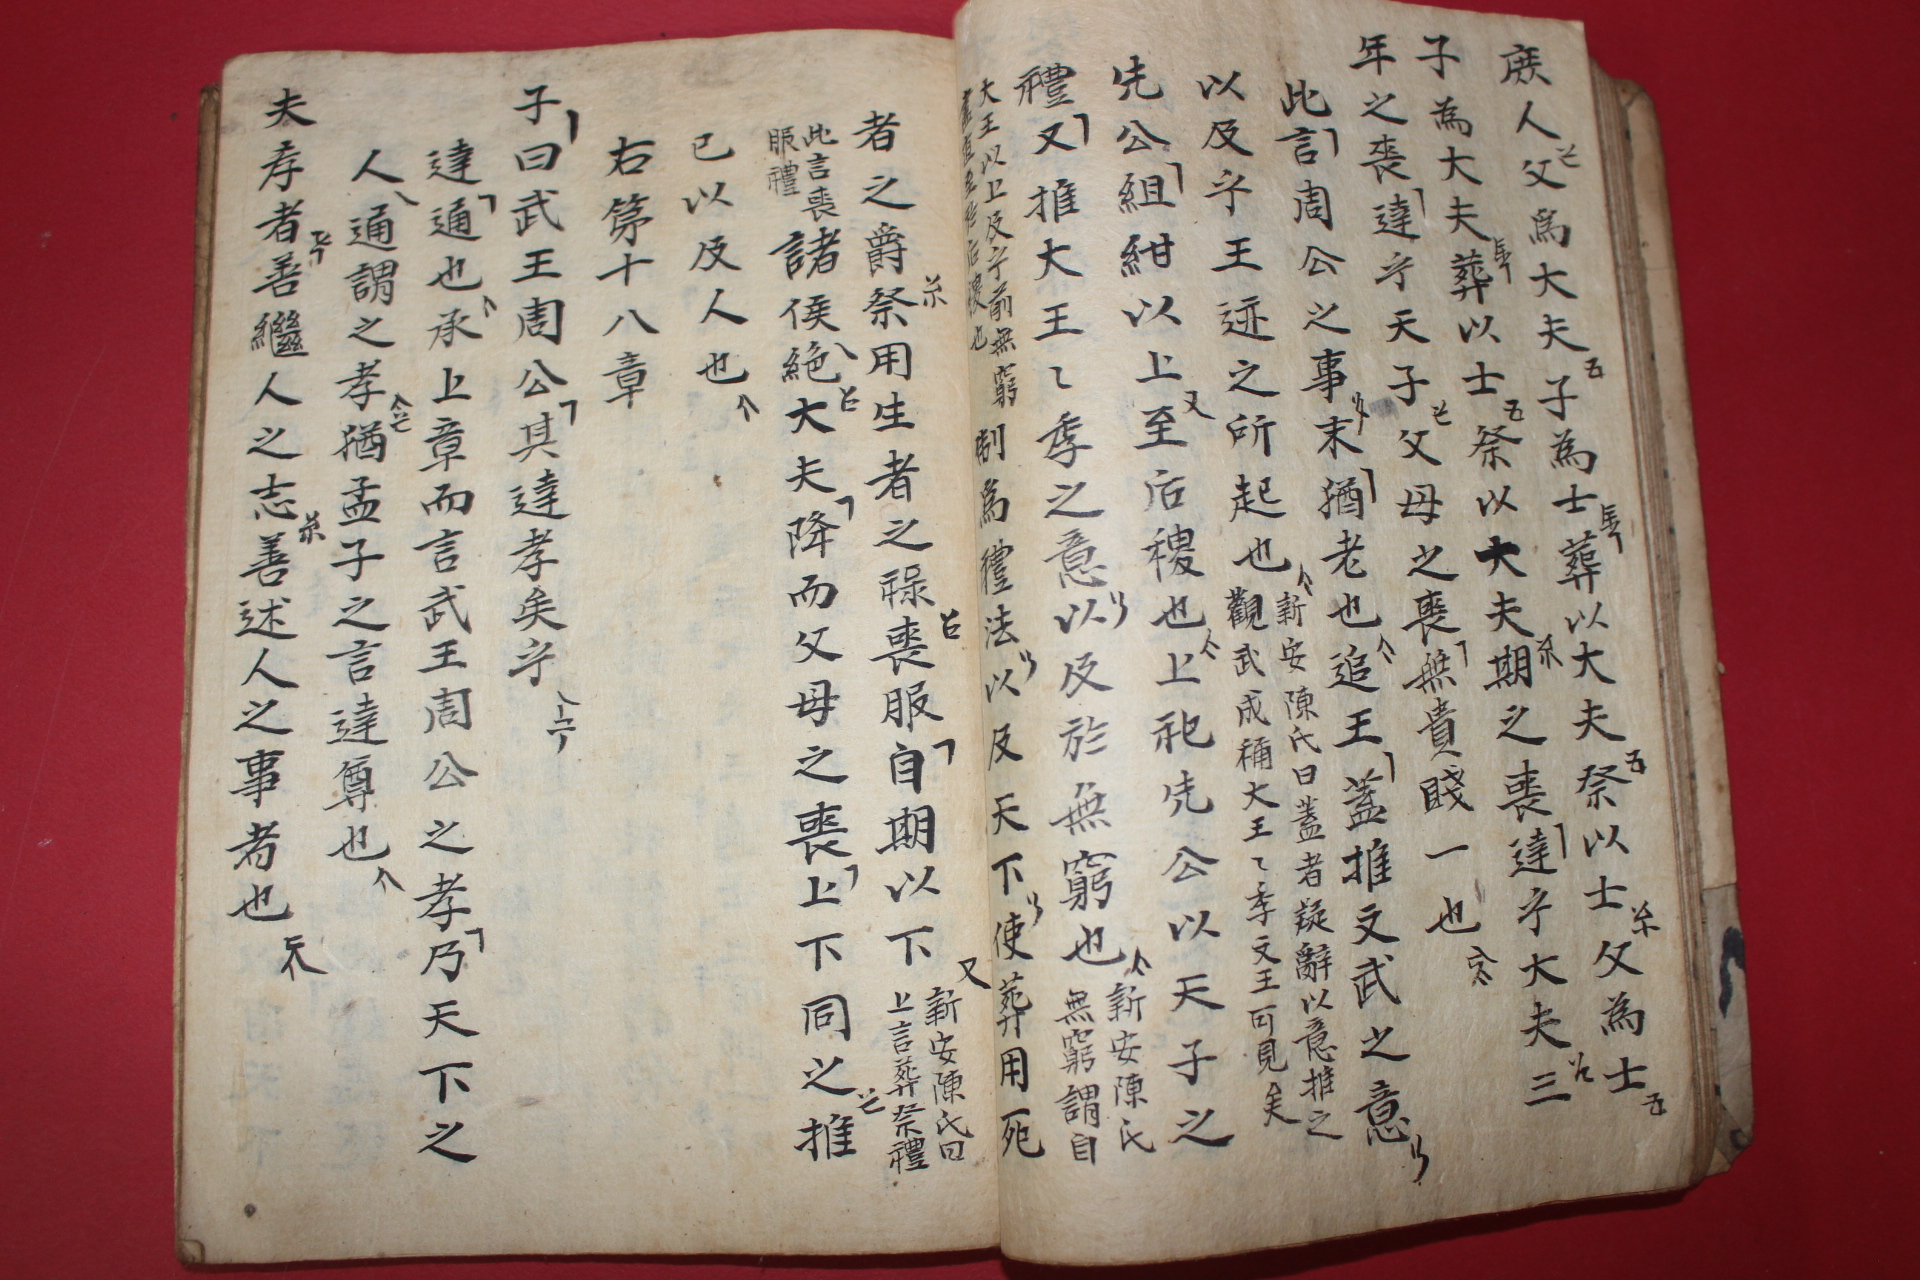 庶人父爲大夫子為士葬以大夫祭以士父為士
子為大夫葬以士祭以大夫期之喪達乎大夫三
年之喪達乎天子父母之喪無貴賤一也
此言周公之事末猶老也追王蓋推文武之意
以及乎王迹之所起也
新安陳氏曰蓋者疑辭以意推之
觀武成稱大王〻季文王可見矣
先公組紺以上至后稷也上祀先公以天子之
禮又推大王〻季之意以及於無窮也
新安陳氏
無窮謂自
大王以上及乎前無窮
后稷也
制爲禮法以及天下使葬用死
者之爵祭用生者之祿喪服自期以下
新安陳氏曰
上言葬祭禮
此言喪
服禮
諸侯絶大夫降而父母之喪上下同之推
已以及人也
右第十八章
子曰武王周公其達孝矣乎
達通也承上章而言武王周公之孝乃天下之
人通謂之孝猶孟子之言達尊也
夫孝者善繼人之志善述人之事者也